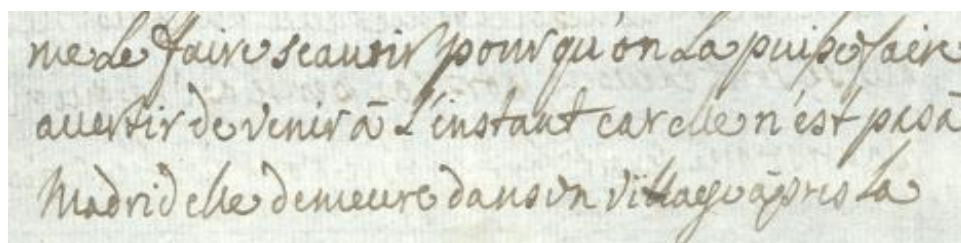 me le faire sçauoir pour qu'on la puisse faire
auertir de venir à L'instant car elle n'est pas à
Madrid elle demeure dans un village àprès la